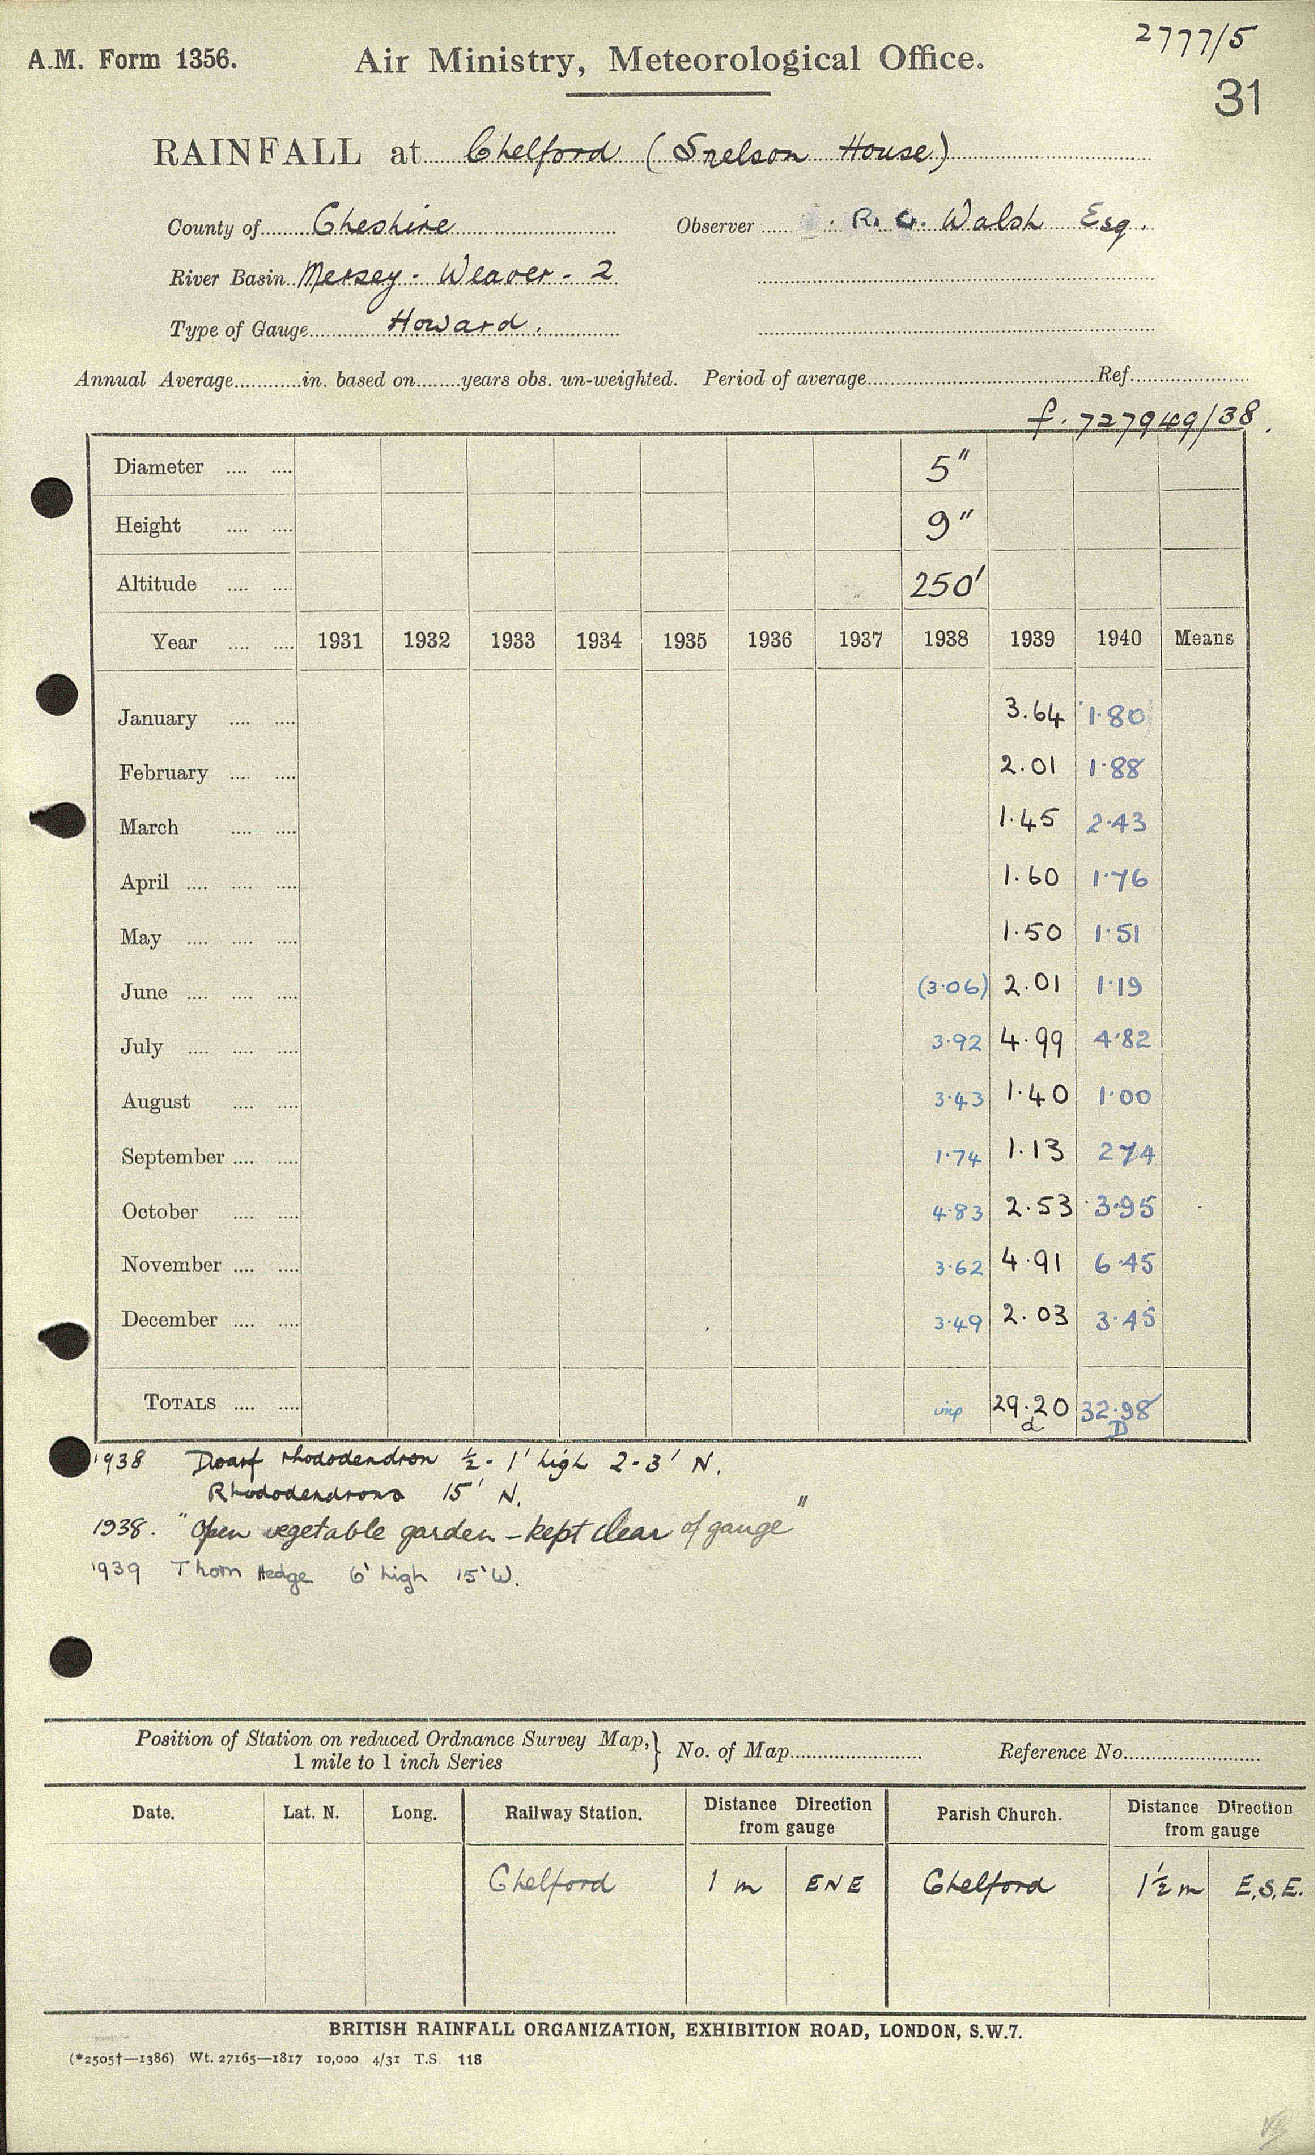 2777/5
A.M. Form 1356. Air Ministry, Meteorological Office.
31
RAINFALL at Chelford (Snelson House)
County of Cheshire Observer R. G. Walsh Esq.
River Basin Mersey - Weaver - 2
Type of Gauge Howard.
Annual Average............in. based on........years obs. un-weighted. Period of average........................................Ref.....................
f. 727949/38.
Diameter .... .... 5"
Height .... .... 9"
Altitude .... .... 250'
Year .... .... 1931 1932 1933 1934 1935 1936 1937 1938 1939 1940 Means
January .... .... 3.64 1.80
February .... .... 2.01 1.88
March .... .... 1.45 2.43
April .... .... .... 1.60 1.76
May .... .... .... 1.50 1.51
June .... .... .... (3.06) 2.01 1.19
July .... .... .... 3.92 4.99 4.82
August .... .... 3.43 1.40 1.00
September .... .... 1.74 1.13 2.74
October .... .... 4.83 2.53 3.95
November .... .... 3.62 4.91 6.45
December .... .... 3.49 2.03 3.45
TOTALS .... .... imp 29.20 32.98
d D
1938 Dwarf rhododendron ½ - 1' high 2-3' N.
Rhododendrons 15' N.
1938. "Open vegetable garden - kept clear of gauge"
1939 Thorn Hedge 6' high 15' W.
Position of Station on reduced Ordnance Survey Map, } No. of Map........................ Reference No.........................
1 mile to 1 inch Series
Date. Lat. N. Long. Railway Station. Distance Direction from gauge Parish Church. Distance Direction from gauge
Chelford 1 m ENE Chelford 1½ m E.S.E.
BRITISH RAINFALL ORGANIZATION, EXHIBITION ROAD, LONDON, S.W.7.
(*2505†—1386) Wt. 27165—1817 10,000 4/31 T.S. 118